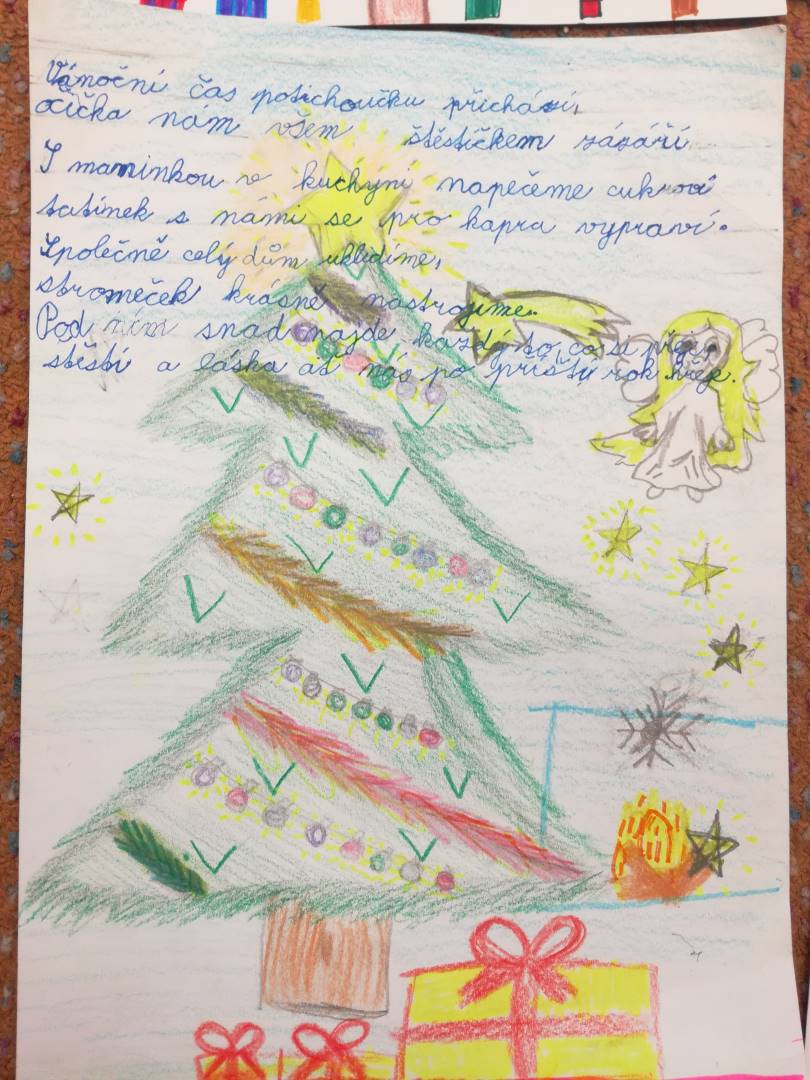 Vánoční čas potichoučku přichází,
očička nám všem štěstíčkem zázáří.
S maminkou v kuchyni napečeme cukroví
tatínek s námi se pro kapra vypraví.
Společně celý dům uklidíme,
stromeček krásně nastrojíme.
Pod ním snad najde každý to co si přeje,
štěstí a láska ať nás po příští rok hřeje.